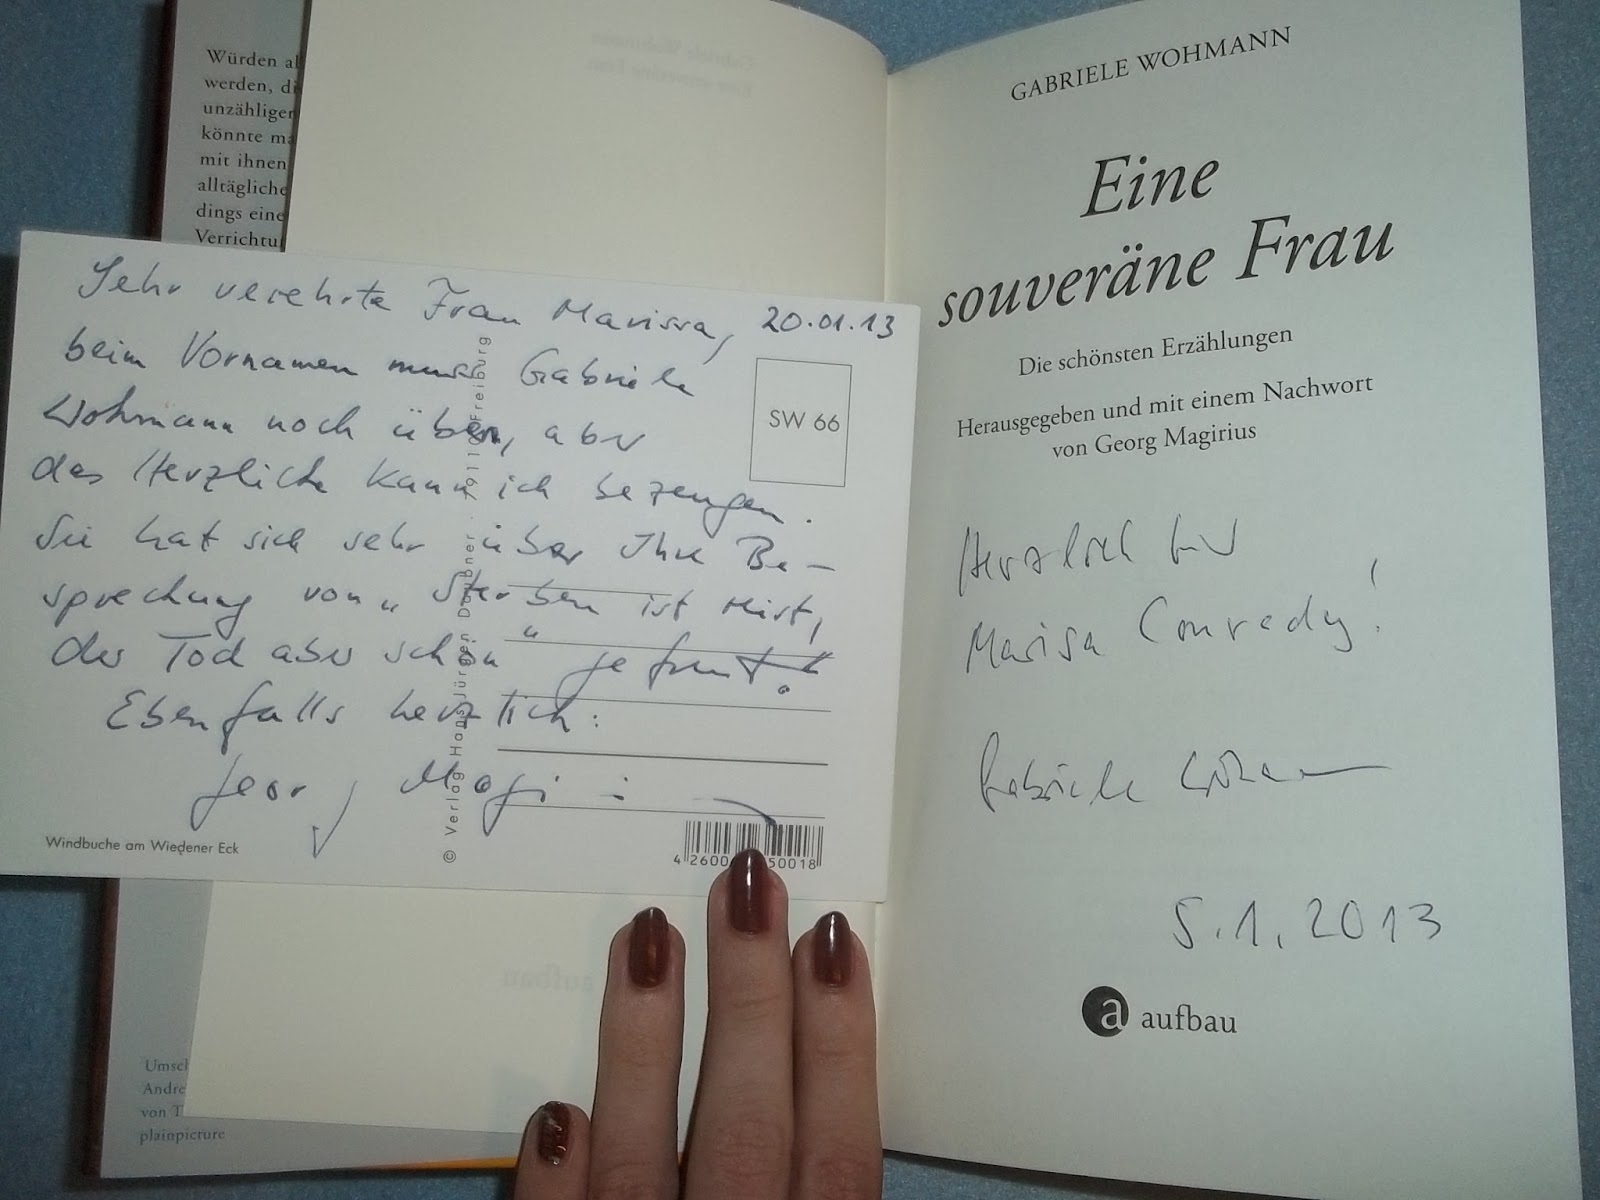 Würden al
werden, di
unzähligen
könnte ma
mit ihnen
alltägliche
dings eine
Verrichtu
Sehr verehrte Frau Marissa, 20.01.13
beim Vornamen muss Gabriele
Wohmann noch üben, aber
das Herzliche kann ich bezeugen.
Sie hat sich sehr über Ihre Be-
sprechung von „Sterben ist Mist,
der Tod aber schön“ gefreut!
Ebenfalls herzlich:
Georg Magirius
SW 66
© Verlag Hans-Jürgen Daubner · Freiburg
Windbuche am Wiedener Eck
4 2600 50018
Umsch
Andre
von T
plainpicture
GABRIELE WOHMANN
Eine
souveräne Frau
Die schönsten Erzählungen
Herausgegeben und mit einem Nachwort
von Georg Magirius
Herzlich für
Marisa Conredy!
Gabriele Wohmann
5.1.2013
a aufbau